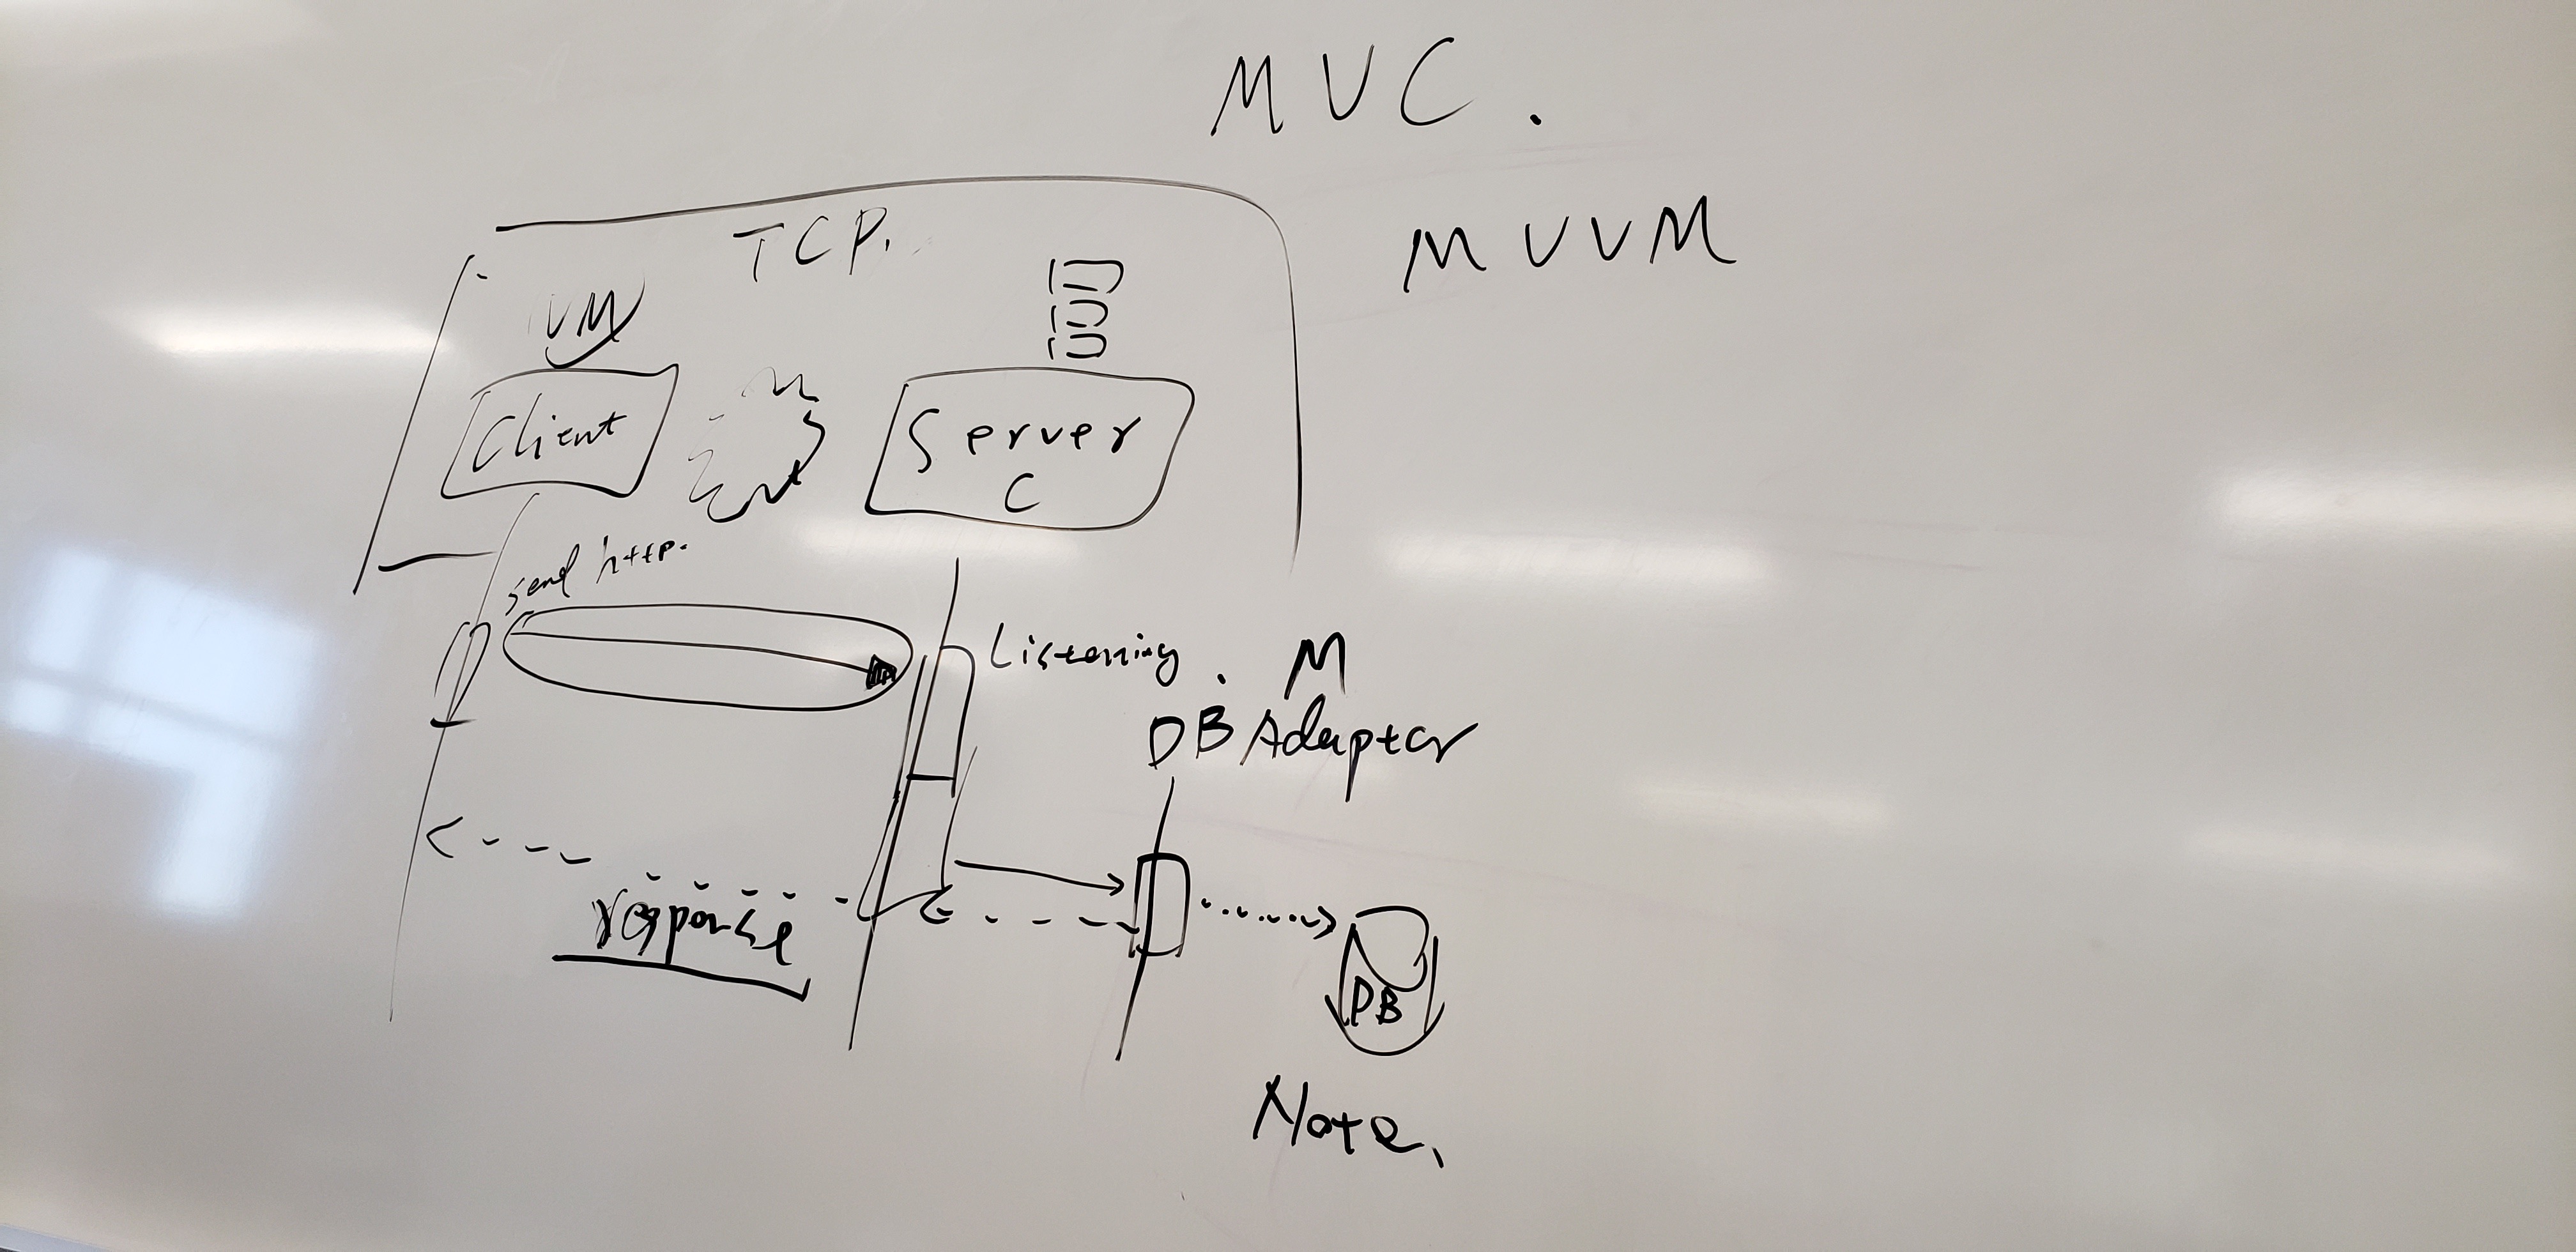 MVC.
TCP.
MVVM
VM
Client
Server
C
send http.
Listening.
M
DB Adapter
response
DB
Note.